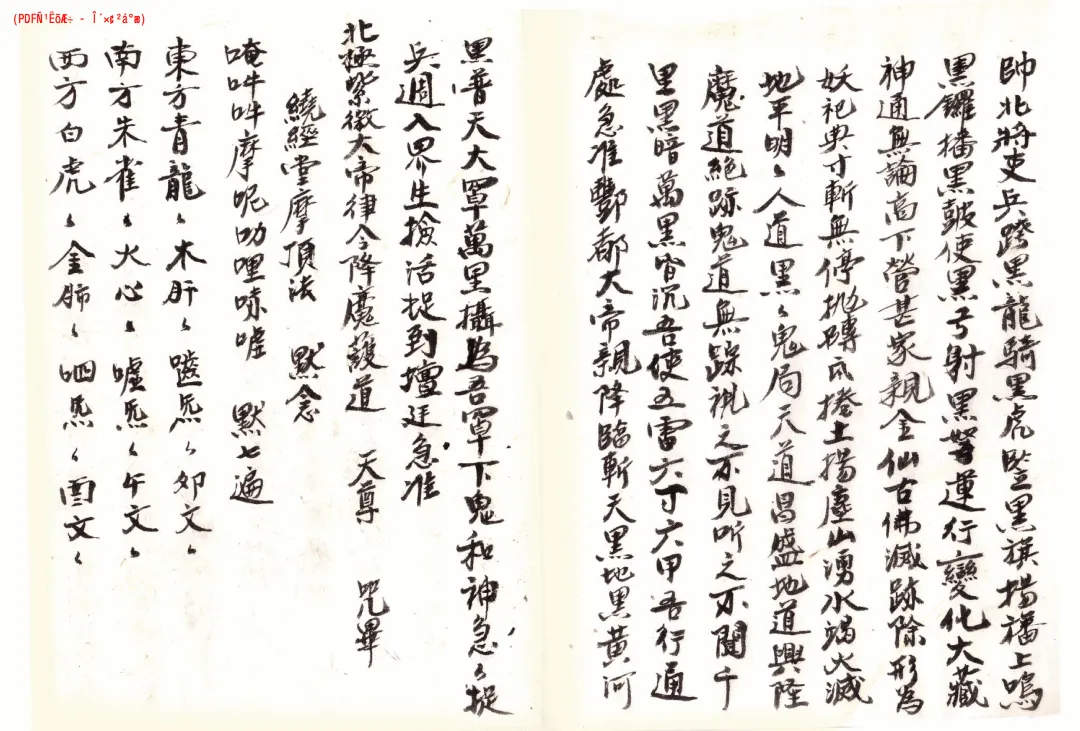 帥北將吏兵跨黑龍騎黑虎豎黑旗揚旛上鳴
黑鑼播黑皷使黑弓射黑弩運行變化大藏
神通無論高下營甚家親金仙古佛滅跡除形為
妖祀典寸斬無停拋磚瓦捲土揚塵山湧水竭火滅
地平明〻人道黑〻鬼局天道昌盛地道興隆
魔道絕跡鬼道無踪視之不見听之不聞千
里黑暗萬黑皆沉吾使五雷六丁六甲吾行通
處急准酆都大帝親降臨斬天黑地黑黃河
黑普天大罩萬里攝為吾罩下鬼和神急〻捉
兵週入界生撿活捉到壇廷急准
北極紫微大帝律令降魔護道 天尊 咒畢
繞經堂摩頂法 默念
唵吽吽摩呢叻哩㖇嚾 默七遍
東方青龍〻木肝〻嘘炁〻卯文〻
南方朱雀〻火心〻嘘炁〻午文〻
西方白虎〻金肺〻呬炁〻酉文〻